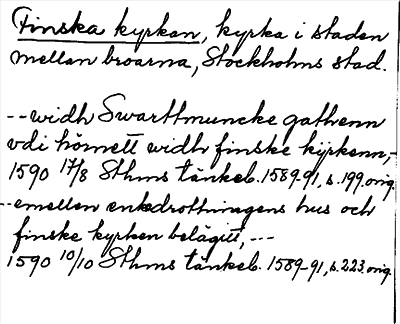 Finska kyrkan, kyrka i staden
mellan broarna, Stockholms stad.
-- widh Swarttmuncke gathenn
vdi hörnett widh finske kÿrkenn,-
1590 17/8 Sthms tänkeb. 1589-91, s. 199. orig.
-- emellan enkedrottningens hus och
finske kyrken belägitt, ---
1590 10/10 Sthms tänkeb. 1589-91, s. 223. orig.